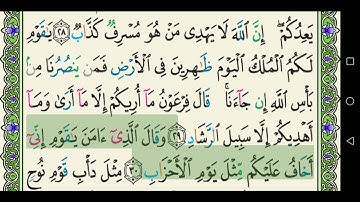 يَعِدُكُمْ ۖ إِنَّ ٱللَّهَ لَا يَهْدِى مَنْ هُوَ مُسْرِفٌ كَذَّابٌ ٢٨ يَٰقَوْمِ
لَكُمُ ٱلْمُلْكُ ٱلْيَوْمَ ظَٰهِرِينَ فِى ٱلْأَرْضِ فَمَن يَنصُرُنَا مِنۢ
بَأْسِ ٱللَّهِ إِن جَآءَنَا ۚ قَالَ فِرْعَوْنُ مَآ أُرِيكُمْ إِلَّا مَآ أَرَىٰ وَمَآ
أَهْدِيكُمْ إِلَّا سَبِيلَ ٱلرَّشَادِ ٢٩ وَقَالَ ٱلَّذِىٓ ءَامَنَ يَٰقَوْمِ إِنِّىٓ
أَخَافُ عَلَيْكُم مِّثْلَ يَوْمِ ٱلْأَحْزَابِ ٣٠ مِثْلَ دَأْبِ قَوْمِ نُوحٍ